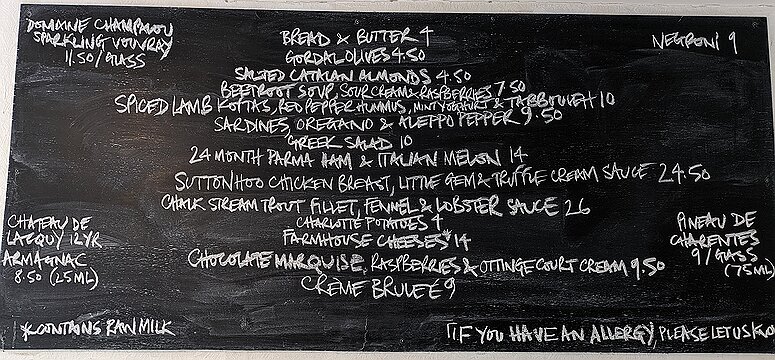 DOMAINE CHAMPALOU
SPARKLING VOUVRAY
11.50/GLASS
NEGRONI 9
BREAD & BUTTER 4
GORDAL OLIVES 4.50
SALTED CATALAN ALMONDS 4.50
BEETROOT SOUP, SOUR CREAM & RASPBERRIES 7.50
SPICED LAMB KOFTAS, RED PEPPER HUMMUS, MINT YOGHURT & TABBOULEH 10
SARDINES, OREGANO & ALEPPO PEPPER 9.50
GREEK SALAD 10
24 MONTH PARMA HAM & ITALIAN MELON 14
SUTTON HOO CHICKEN BREAST, LITTLE GEM & TRUFFLE CREAM SAUCE 24.50
CHALK STREAM TROUT FILLET, FENNEL & LOBSTER SAUCE 26
CHARLOTTE POTATOES 4
FARMHOUSE CHEESES* 14
CHOCOLATE MARQUISE, RASPBERRIES & OTTINGE COURT CREAM 9.50
CRÈME BRULEÉ 9
CHATEAU DE
LACQUY 12YR
ARMAGNAC
8.50 (25ML)
PINEAU DE
CHARENTES
9/GLASS
(75ML)
*CONTAINS RAW MILK
IF YOU HAVE AN ALLERGY, PLEASE LET US